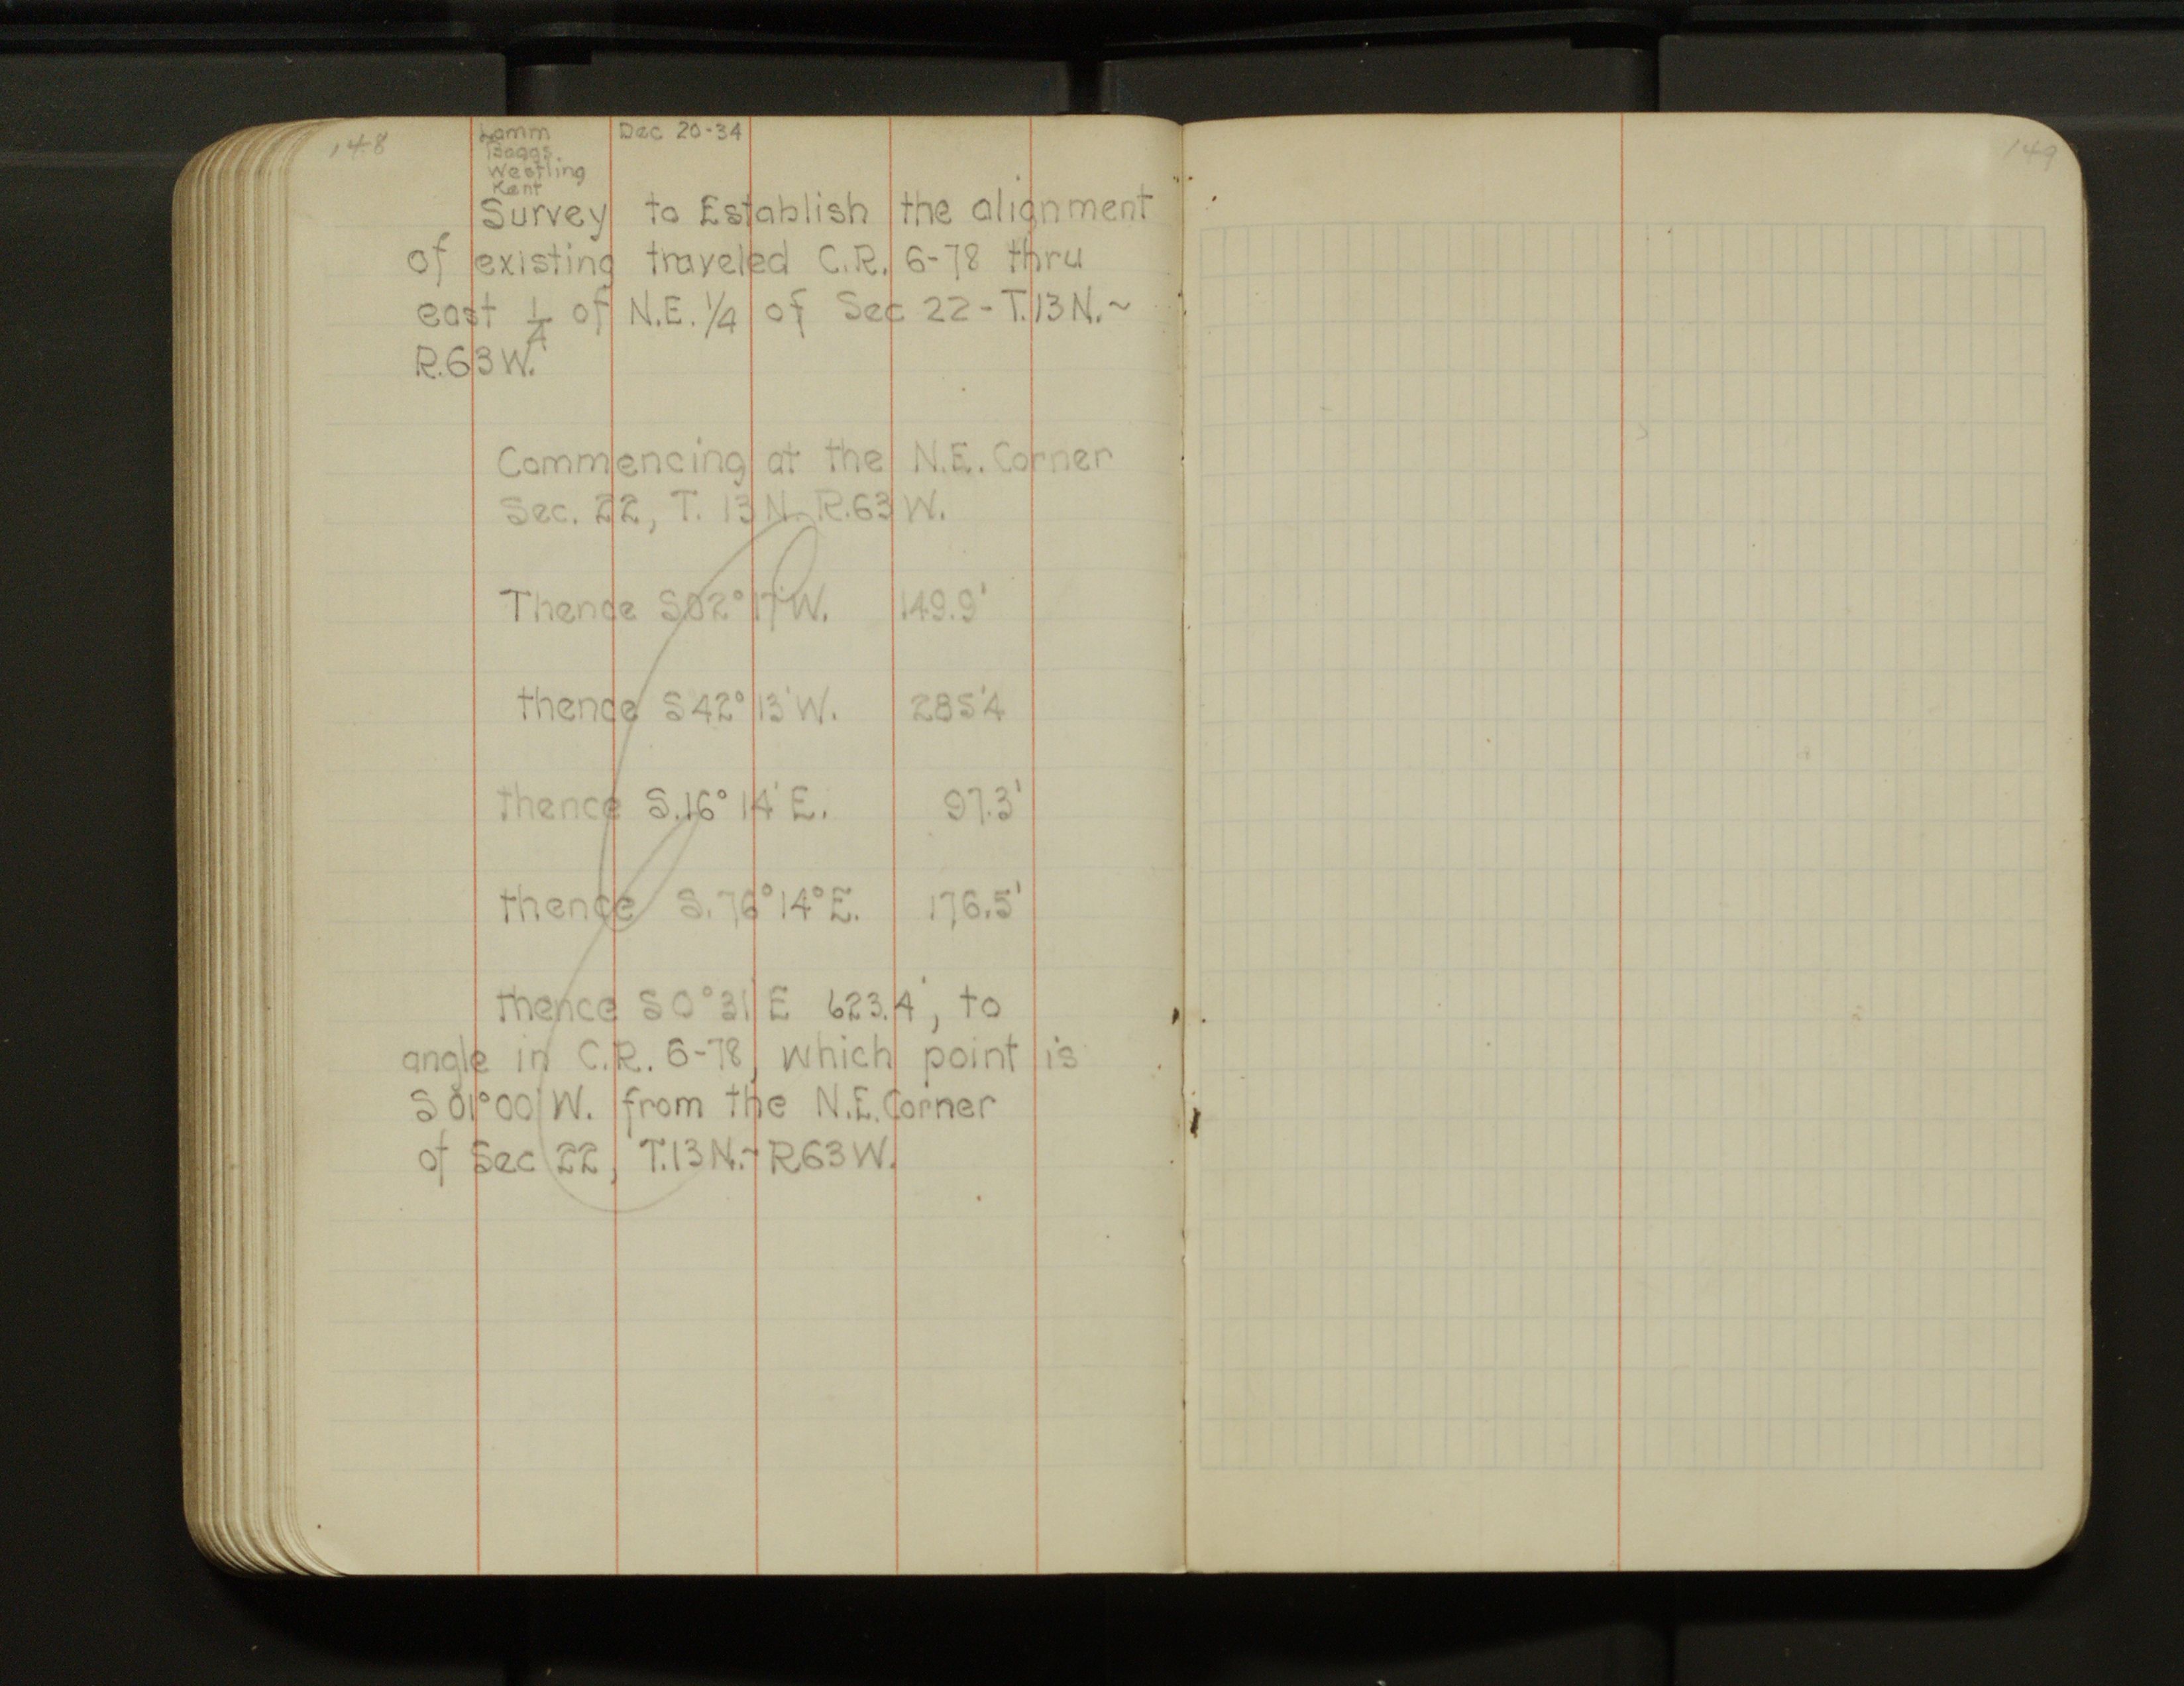 148
Lamm
Baggs
Westling
Kent
Dec 20-34
Survey to Establish the alignment
of existing traveled C.R. 6-78 thru
east 1/4 of N.E. 1/4 of Sec 22 - T.13N.~
R.63W.
Commencing at the N.E. Corner
Sec. 22, T. 13 N. R.63 W.
Thence S02°17'W. 149.9'
thence S42°13'W. 285'4
thence S.16°14'E. 97.3'
thence S.76°14°E. 176.5'
thence S0°31'E 623.4', to
angle in C.R. 6-78, which point is
S01°00'W. from the N.E. Corner
of Sec 22, T.13N.~R63W.
149